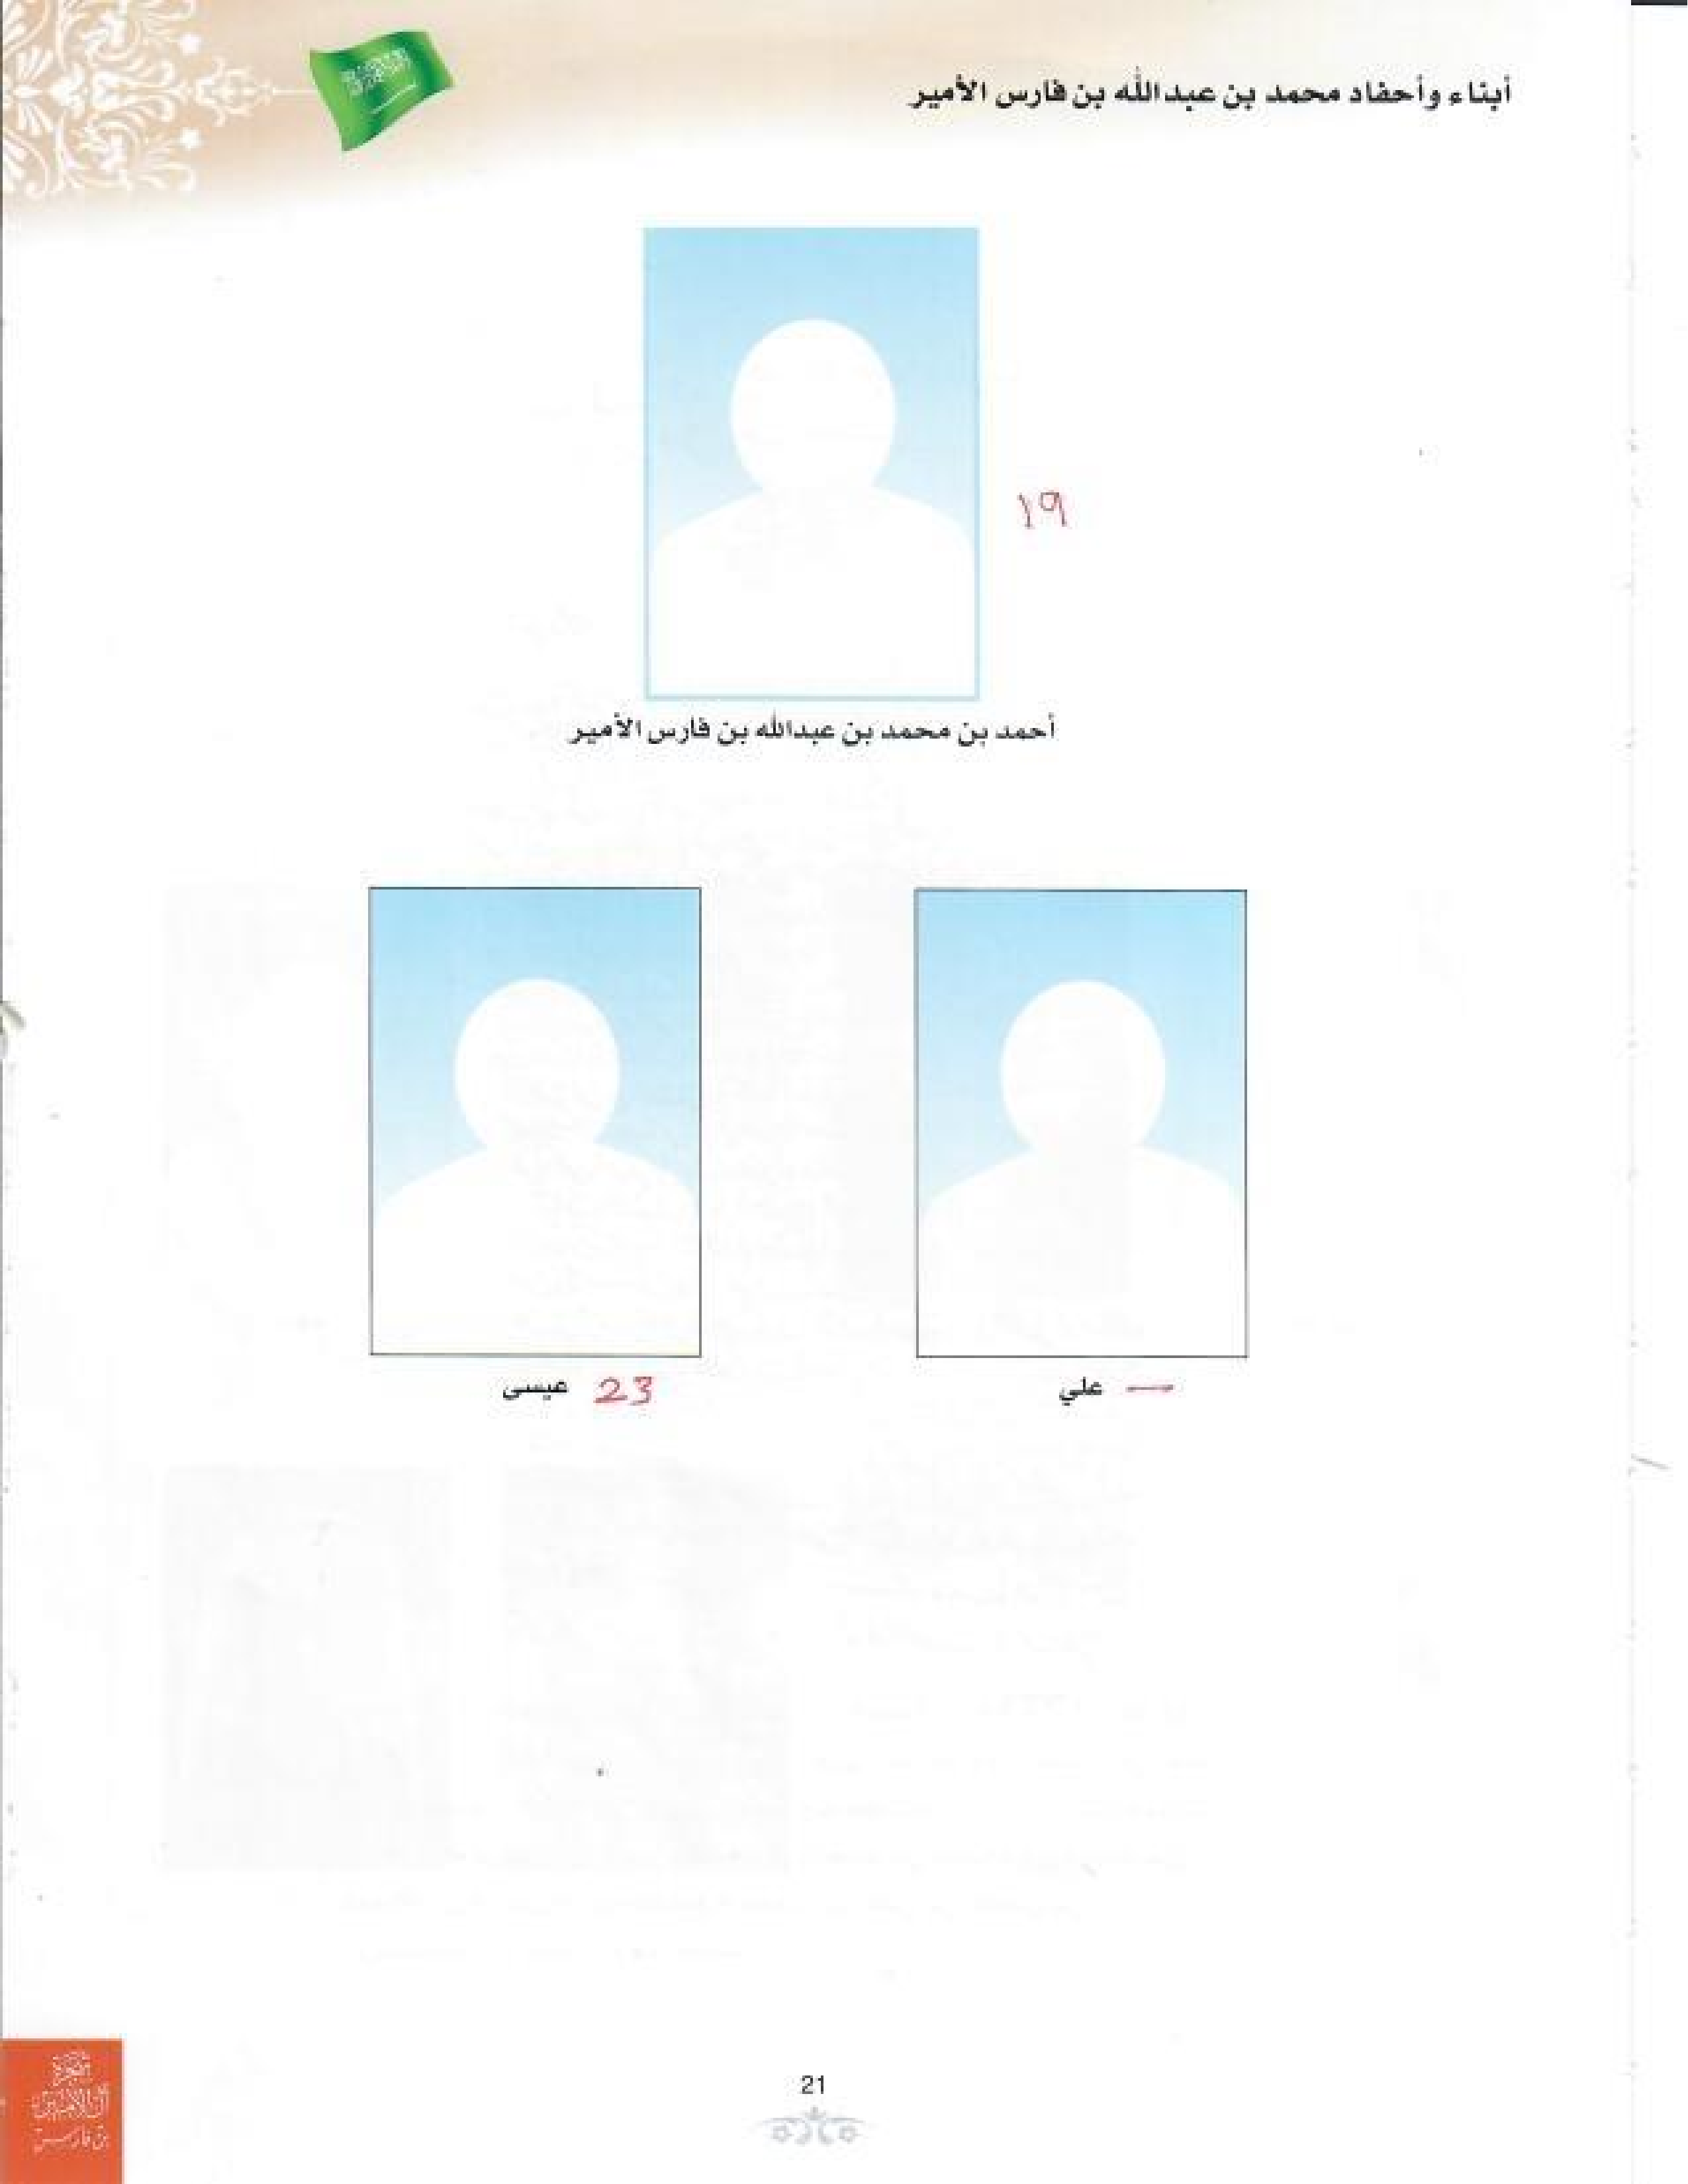 أبناء وأحفاد محمد بن عبدالله بن فارس الأمير
١٩
أحمد بن محمد بن عبدالله بن فارس الأمير
علي —
عيسى 23
21
شجرة
آل الأمير
بن فارس